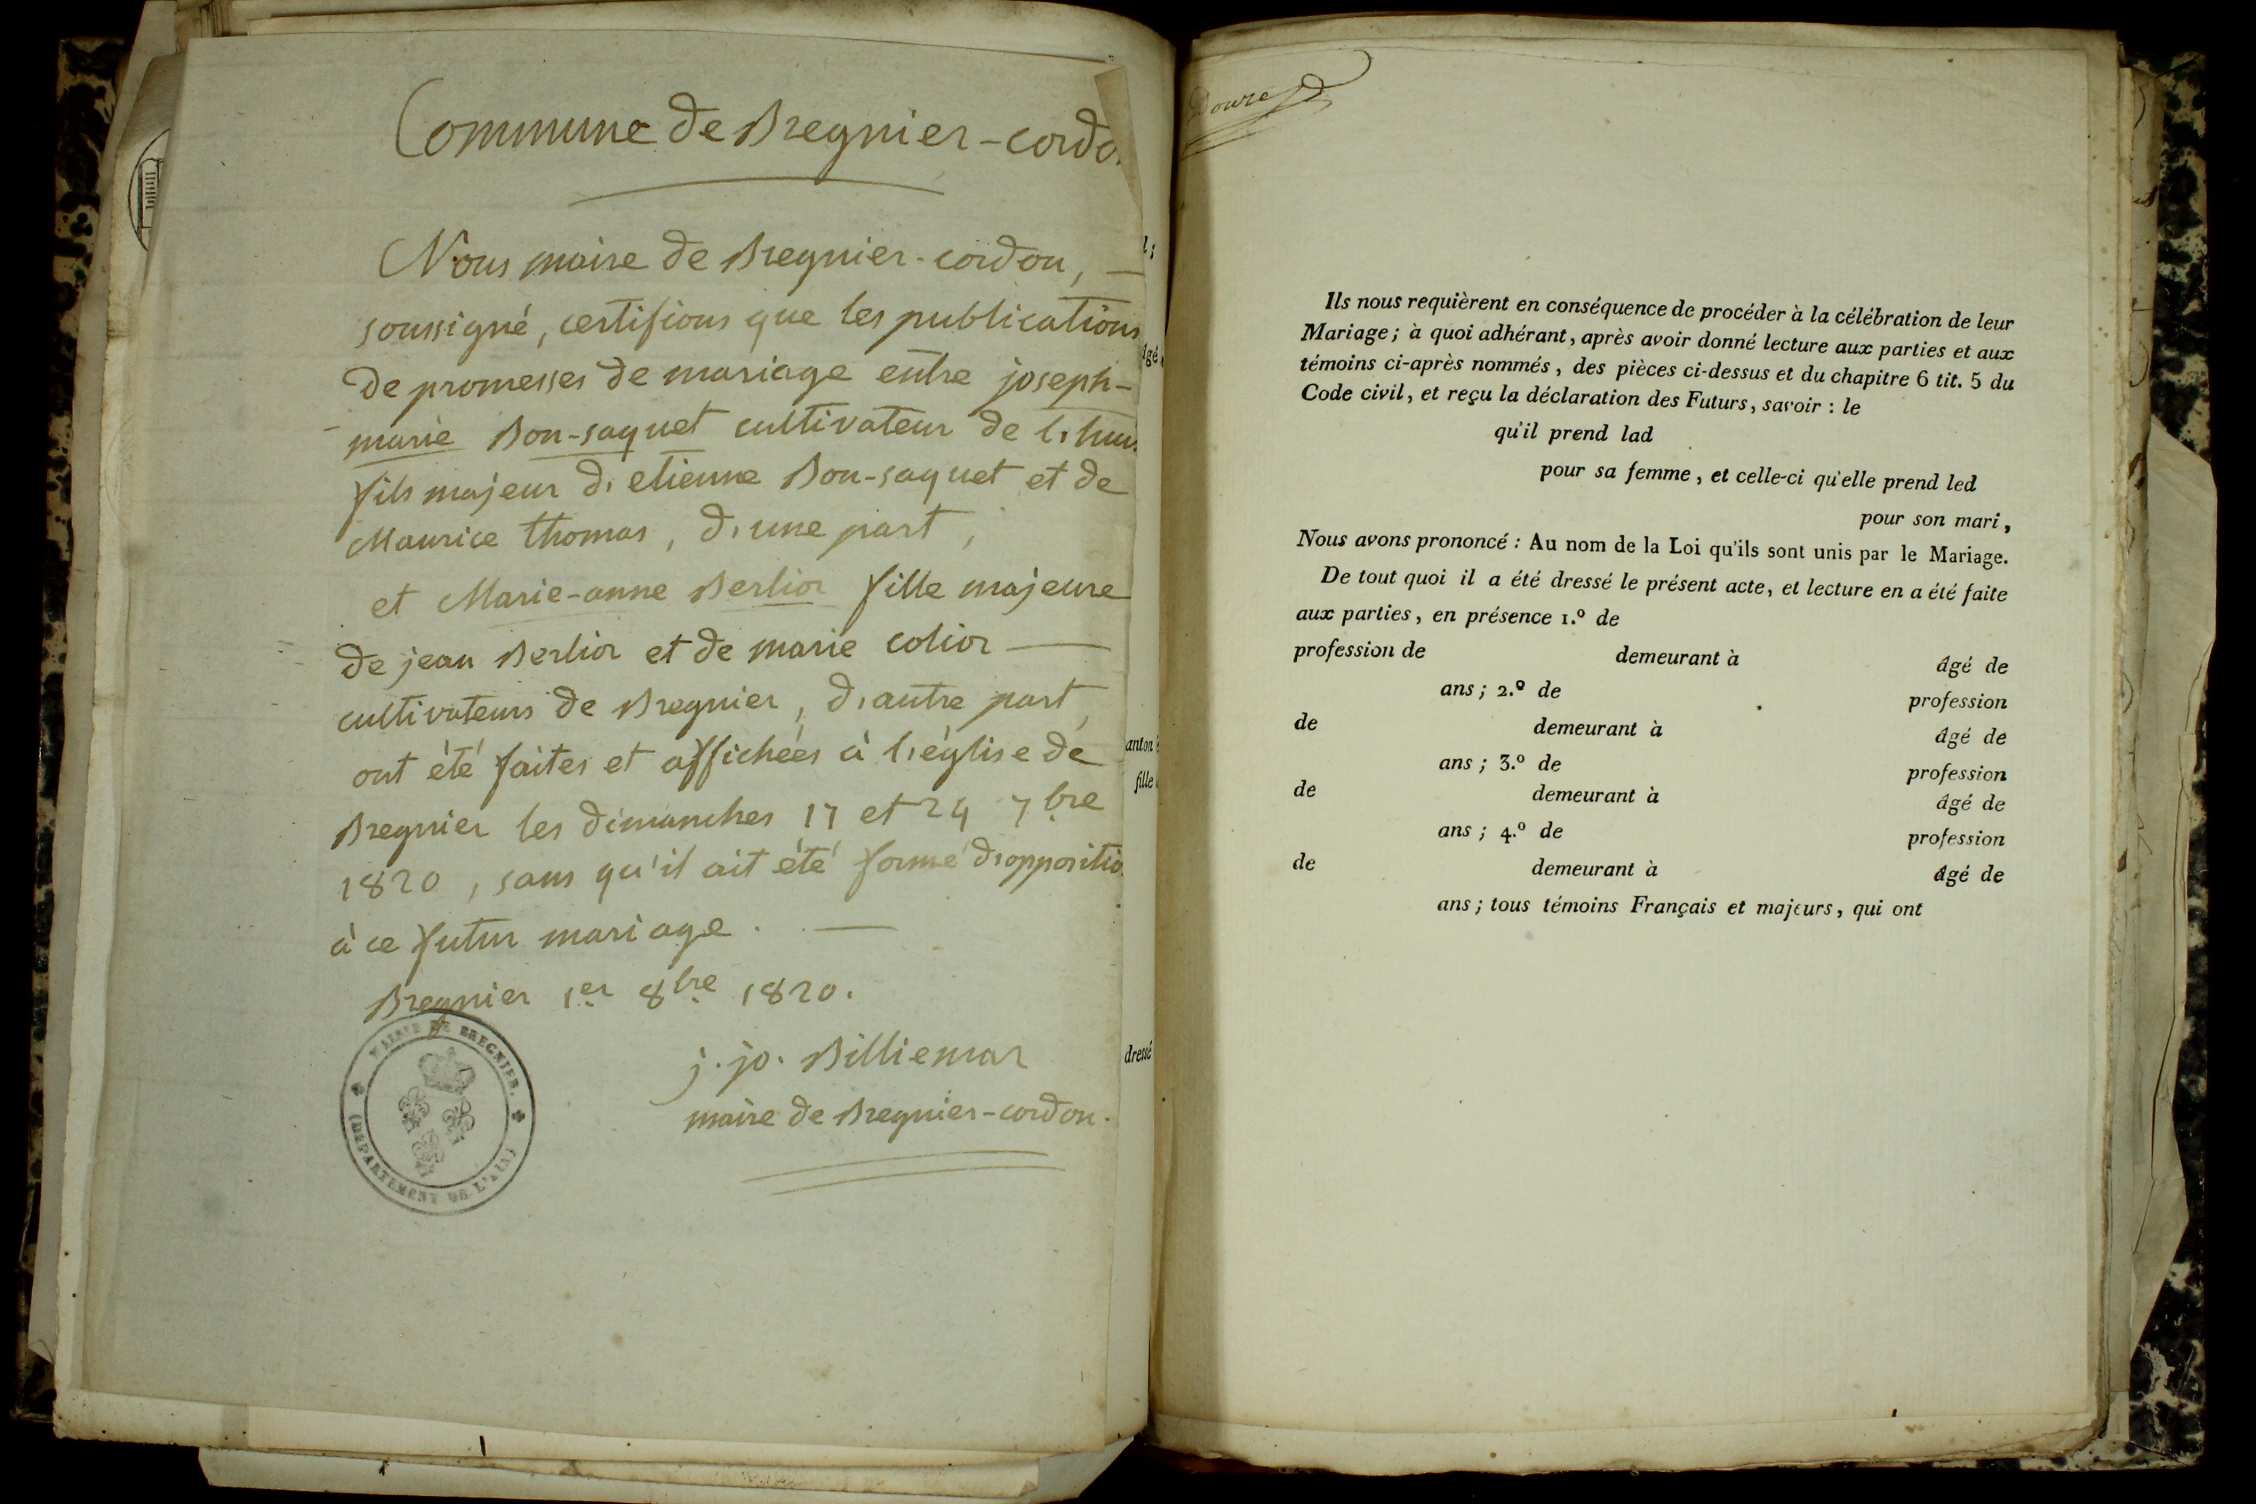 Commune de Bregnier-cordo
Nous maire de Bregnier-cordon,
soussigné, certifions que les publications
de promesses de mariage entre joseph-
marie Bon-saquet cultivateur de
fils majeur d'etienne Bon-saquet et de
Maurice thomas, d'une part,
et Marie-anne Berlior fille majeure
de jean Berlior et de marie colior
cultivateurs de Bregnier, d'autre part,
ont été faites et affichées à l'église de
Bregnier les dimanches 17 et 24 7bre
1820, sans qu'il ait été formé d'oppositio
à ce futur mariage.
Bregnier 1er 8bre 1820.
j. jo. Billiemar
maire de Bregnier-cordon.
MAIRIE DE BREGNIER.
(DÉPARTEMENT DE L'AIN)
âgé
anton
fille
dressé
Ils nous requièrent en conséquence de procéder à la célébration de leur
Mariage; à quoi adhérant, après avoir donné lecture aux parties et aux
témoins ci-après nommés, des pièces ci-dessus et du chapitre 6 tit. 5 du
Code civil, et reçu la déclaration des Futurs, savoir : le
qu'il prend lad
pour sa femme, et celle-ci qu'elle prend led
pour son mari,
Nous avons prononcé : Au nom de la Loi qu'ils sont unis par le Mariage.
De tout quoi il a été dressé le présent acte, et lecture en a été faite
aux parties, en présence 1.º de
profession de demeurant à âgé de
ans; 2.º de profession
de demeurant à âgé de
ans; 3.º de profession
de demeurant à âgé de
ans; 4.º de profession
de demeurant à âgé de
ans; tous témoins Français et majeurs, qui ont